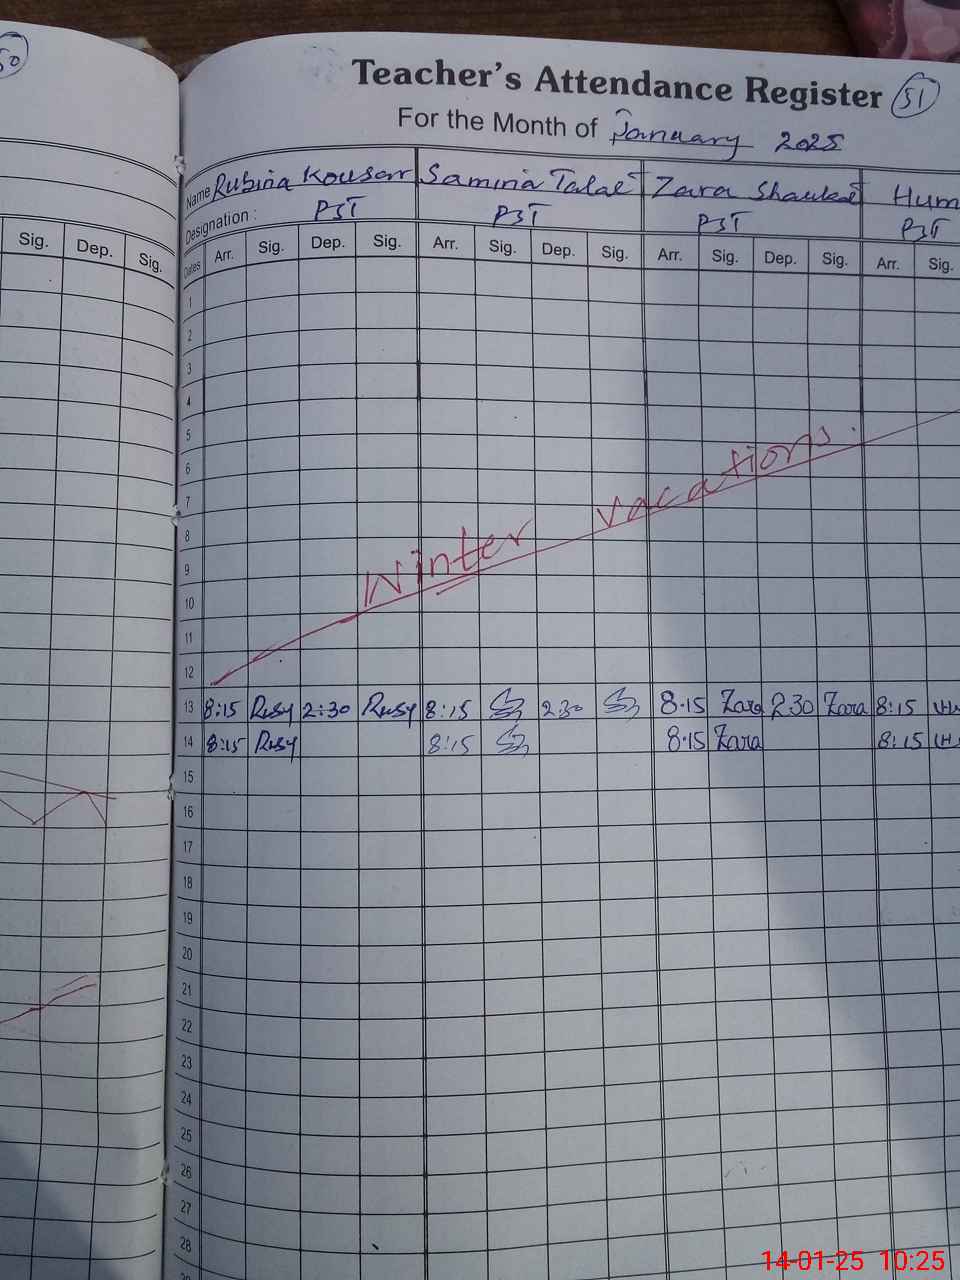 50
Teacher's Attendance Register 51
For the Month of January 2025
Name Rubina Kousar Samina Talat Zara Shaukat Hum
Designation : PST PST PST PST
Sig. Dep. Sig.
Dates Arr. Sig. Dep. Sig. Arr. Sig. Dep. Sig. Arr. Sig. Dep. Sig. Arr. Sig.
1
2
3
4
5
6
7
8
9
10
11
12
Winter vacations.
13 8:15 Rusy 2:30 Rusy 8:15 2:30 8.15 Zara 2 30 Zara 8:15
14 8:15 Rusy 8:15 8.15 Zara 8:15
15
16
17
18
19
20
21
22
23
24
25
26
27
28
14-01-25 10:25